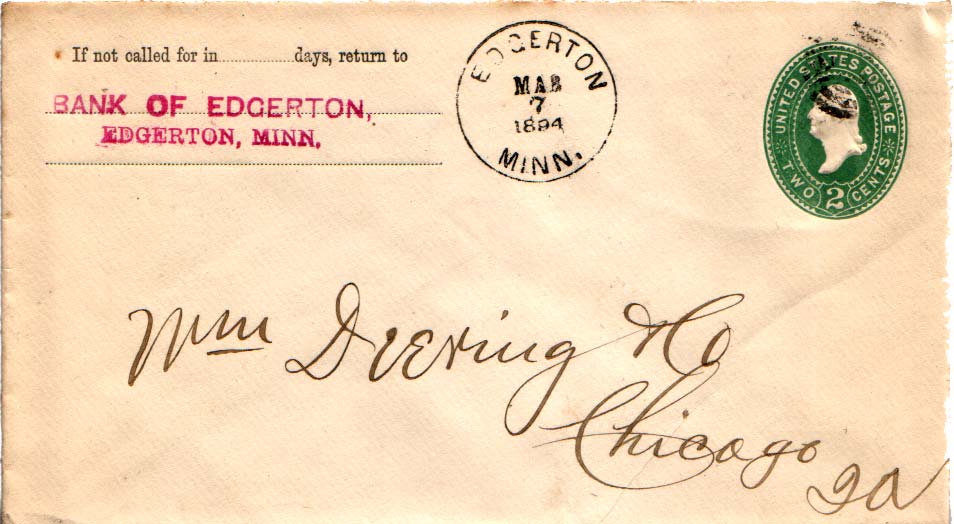 If not called for in............days, return to
BANK OF EDGERTON,
EDGERTON, MINN.
EDGERTON
MAR
7
1894
MINN.
UNITED STATES POSTAGE
TWO 2 CENTS
Wm Deering & Co
Chicago